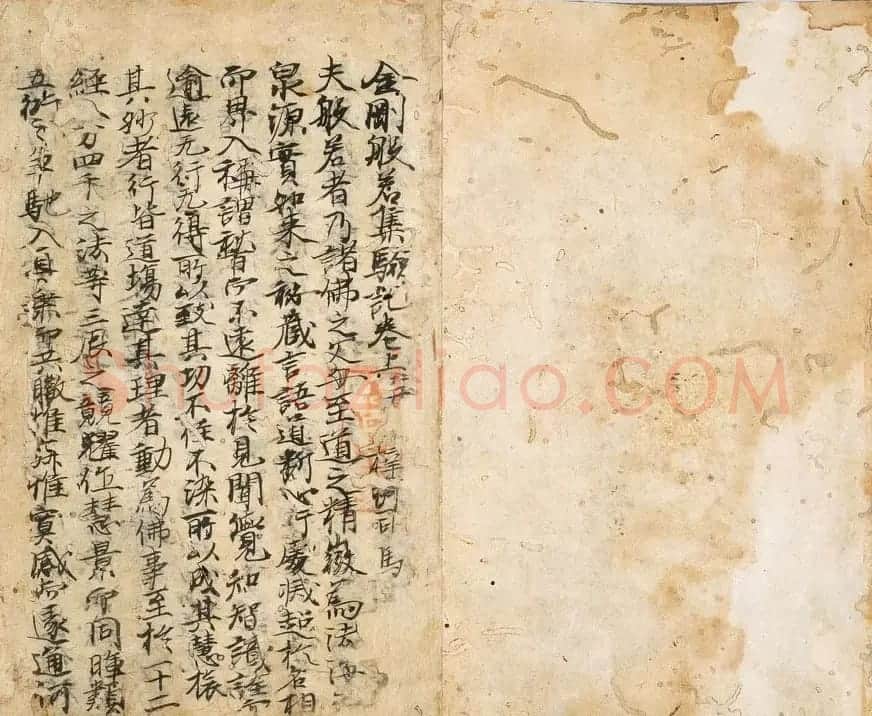 金剛般若集驗記卷上 梓州司馬
夫般若者乃諸佛之父母至道之精微為法海
泉源實如來之祕藏言語道斷心行處滅超於名相
而界入稱謂不遠離於見聞覺知智識詮而
逾遠无行无得所以致其功不住不染所以成其慧
其妙者行皆道場達其理者動為佛事至於一十二
經八分四千之法等三辰之競耀慧景而同暉類
五衍之爭馳入真乘而共轍惟寂惟寞感而遂通河
ShufaZiliao.COM